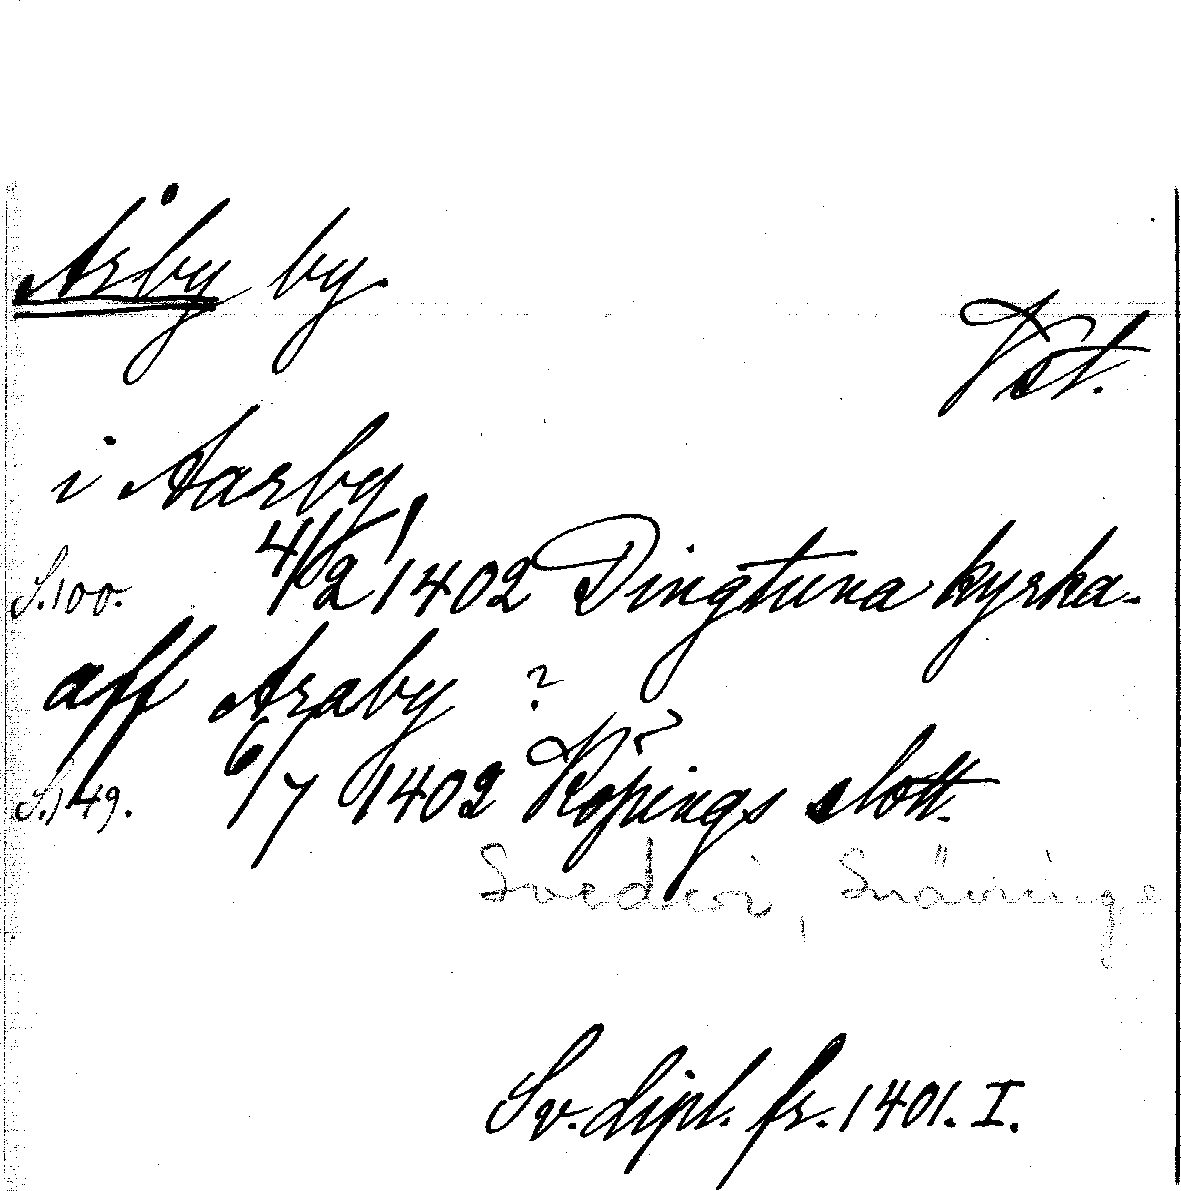 Årby by.
Vst.
i Aarby
S. 100. 4/2 1402 Dingtuna kyrka.
aff Araby ?
S. 149. 6/7 1402 Köpings slott.
Svedvi, Snävringe
Sv. dipl. fr. 1401. I.